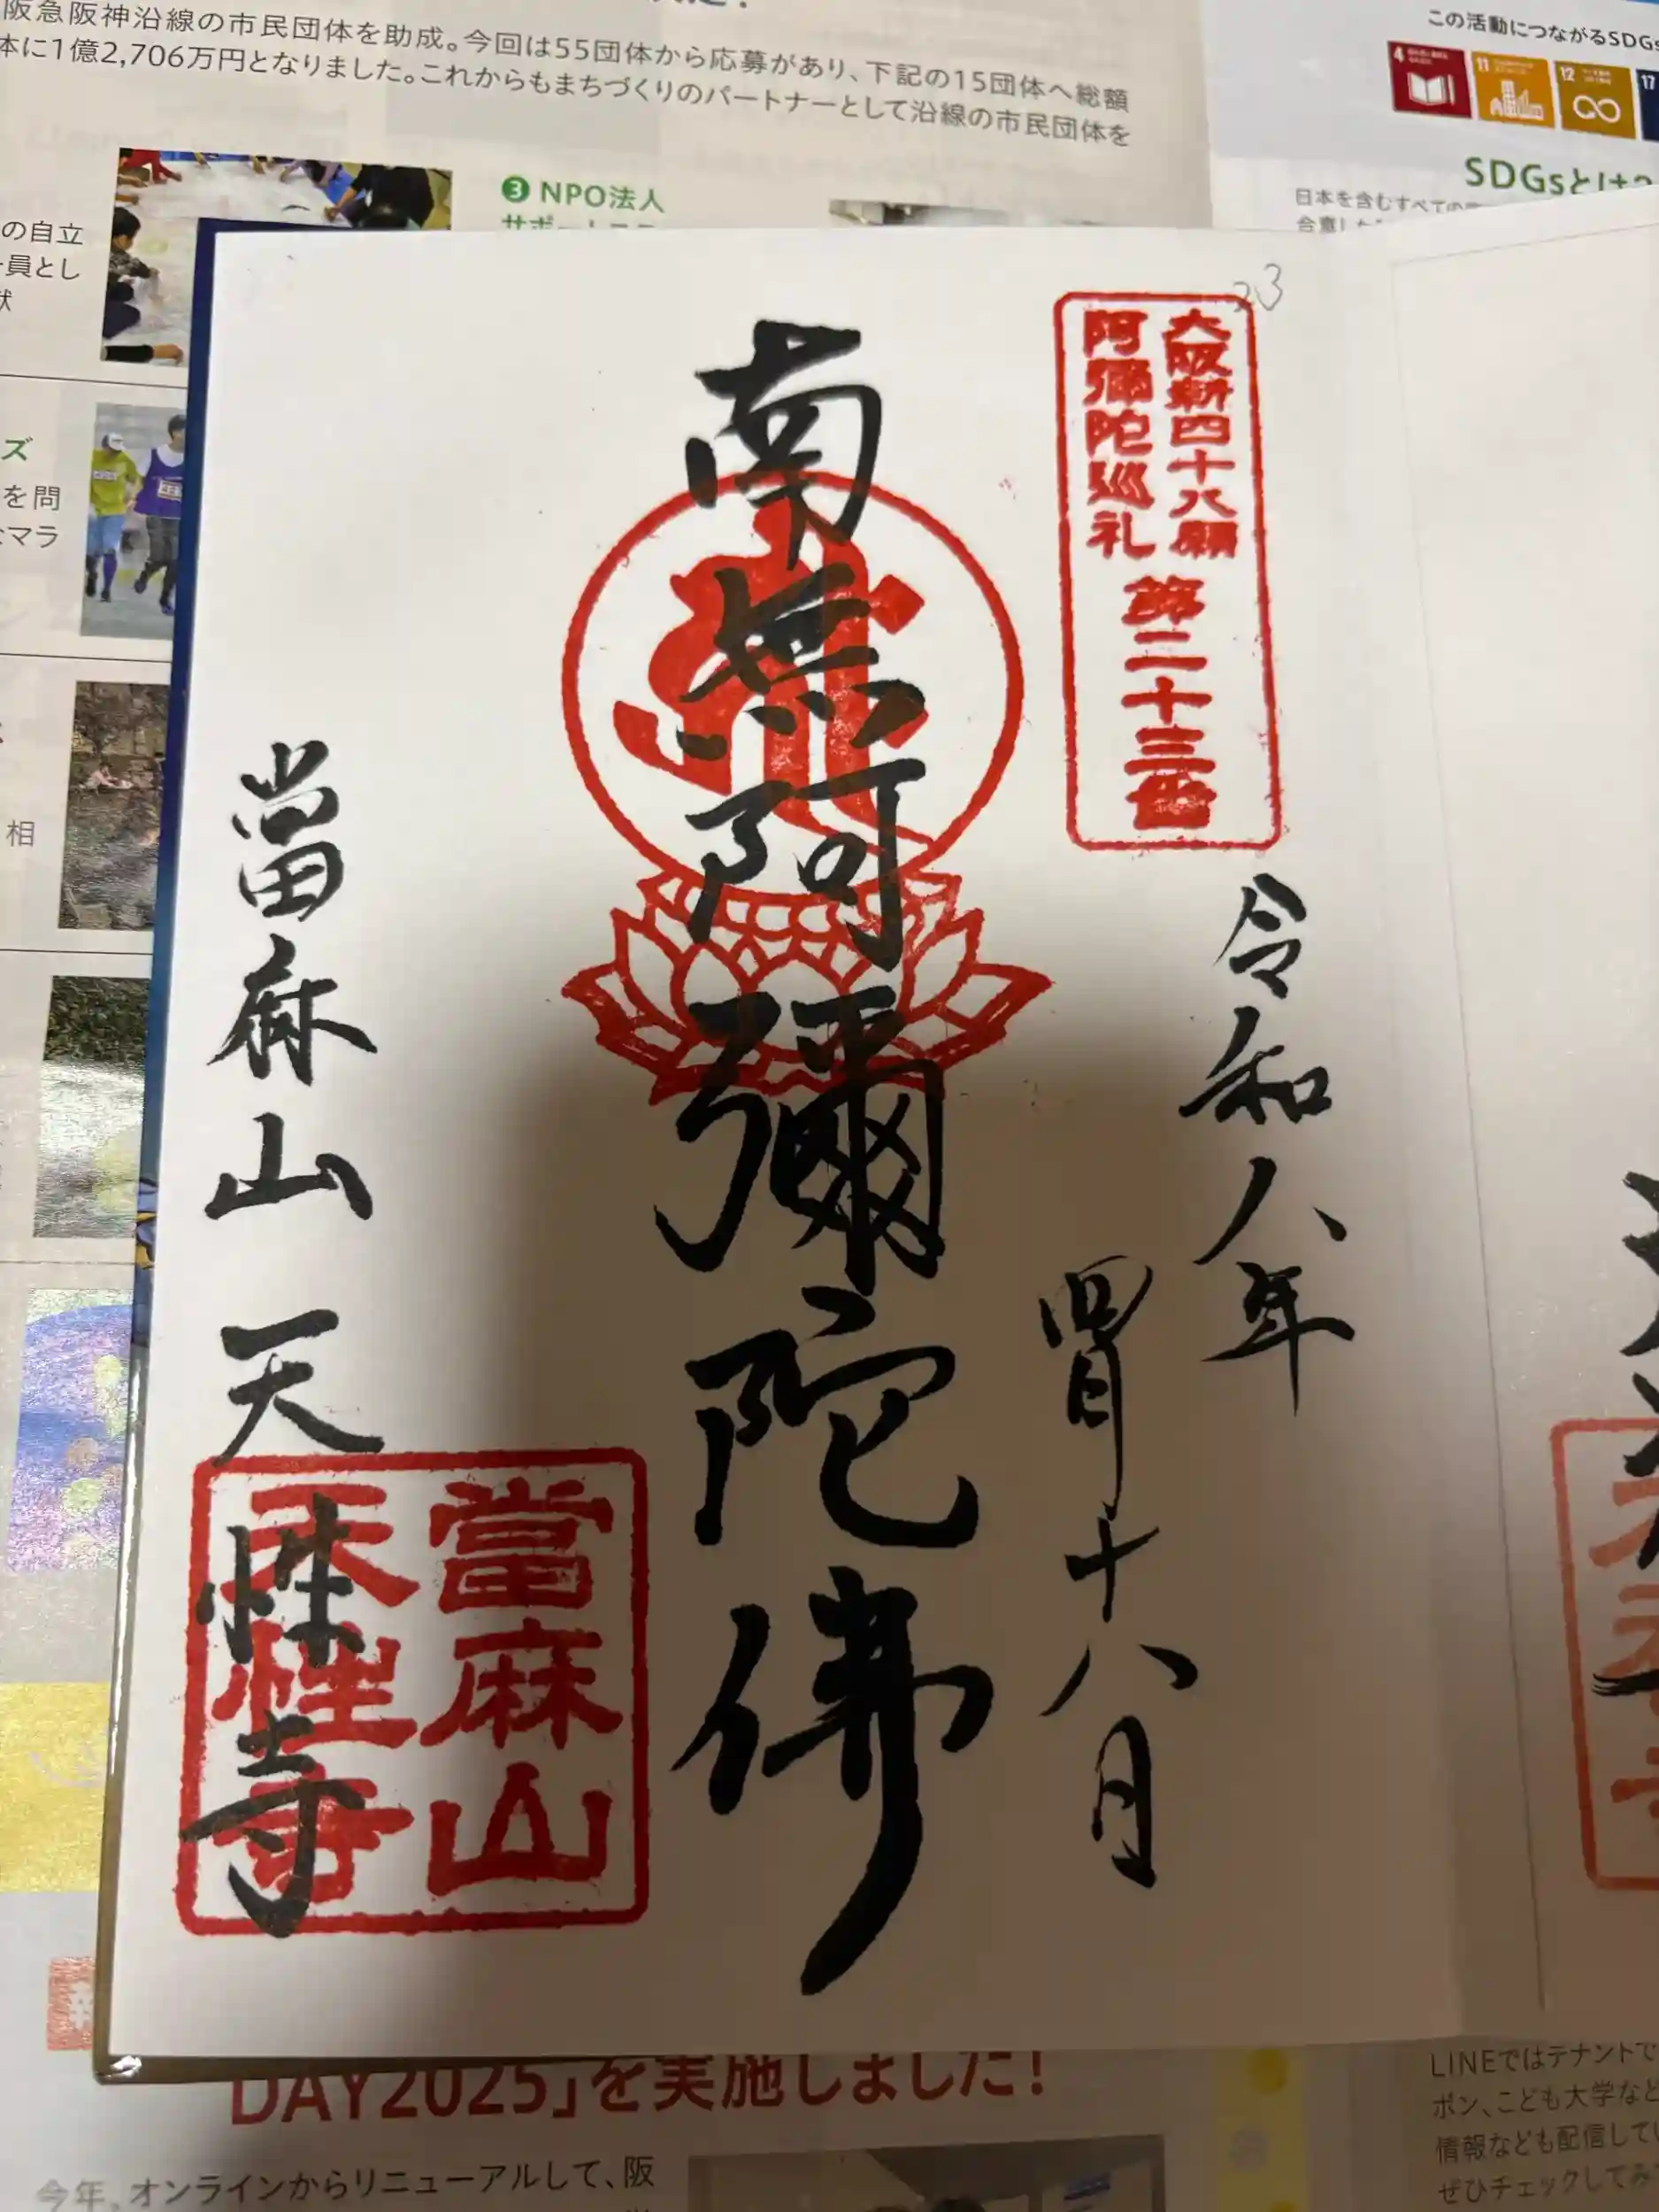 阪急阪神沿線の市民団体を助成。今回は55団体から応募があり、下記の15団体へ総額
体に1億2,706万円となりました。これからもまちづくりのパートナーとして沿線の市民団体を
この活動につながるSDGs
4
11
12
17
SDGsとは?
日本を含むすべての
3 NPO法人
の自立
員とし
ズ
を問
なマラ
相
23
大阪新四十八願
阿彌陀巡礼
第二十三番
令和八年
四月十八日
南無阿彌陀佛
當麻山 天性寺
當麻山
天性寺
DAY2025」を実施しました!
今年、オンラインからリニューアルして、阪
LINEではテナントで
ポン、こども大学など
情報なども配信してい
ぜひチェックしてみ